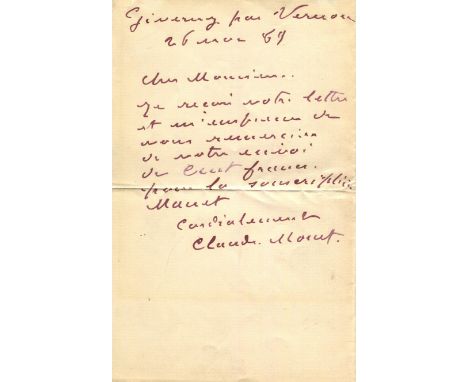 Giverny par Vernon
26 nov 89
Cher Monsieur..
Je reçois votre lettre
et m'empresse de
vous remercier
de votre envoi
de Cent francs.
pour la souscription
Manet
Cordialement
Claude Monet.